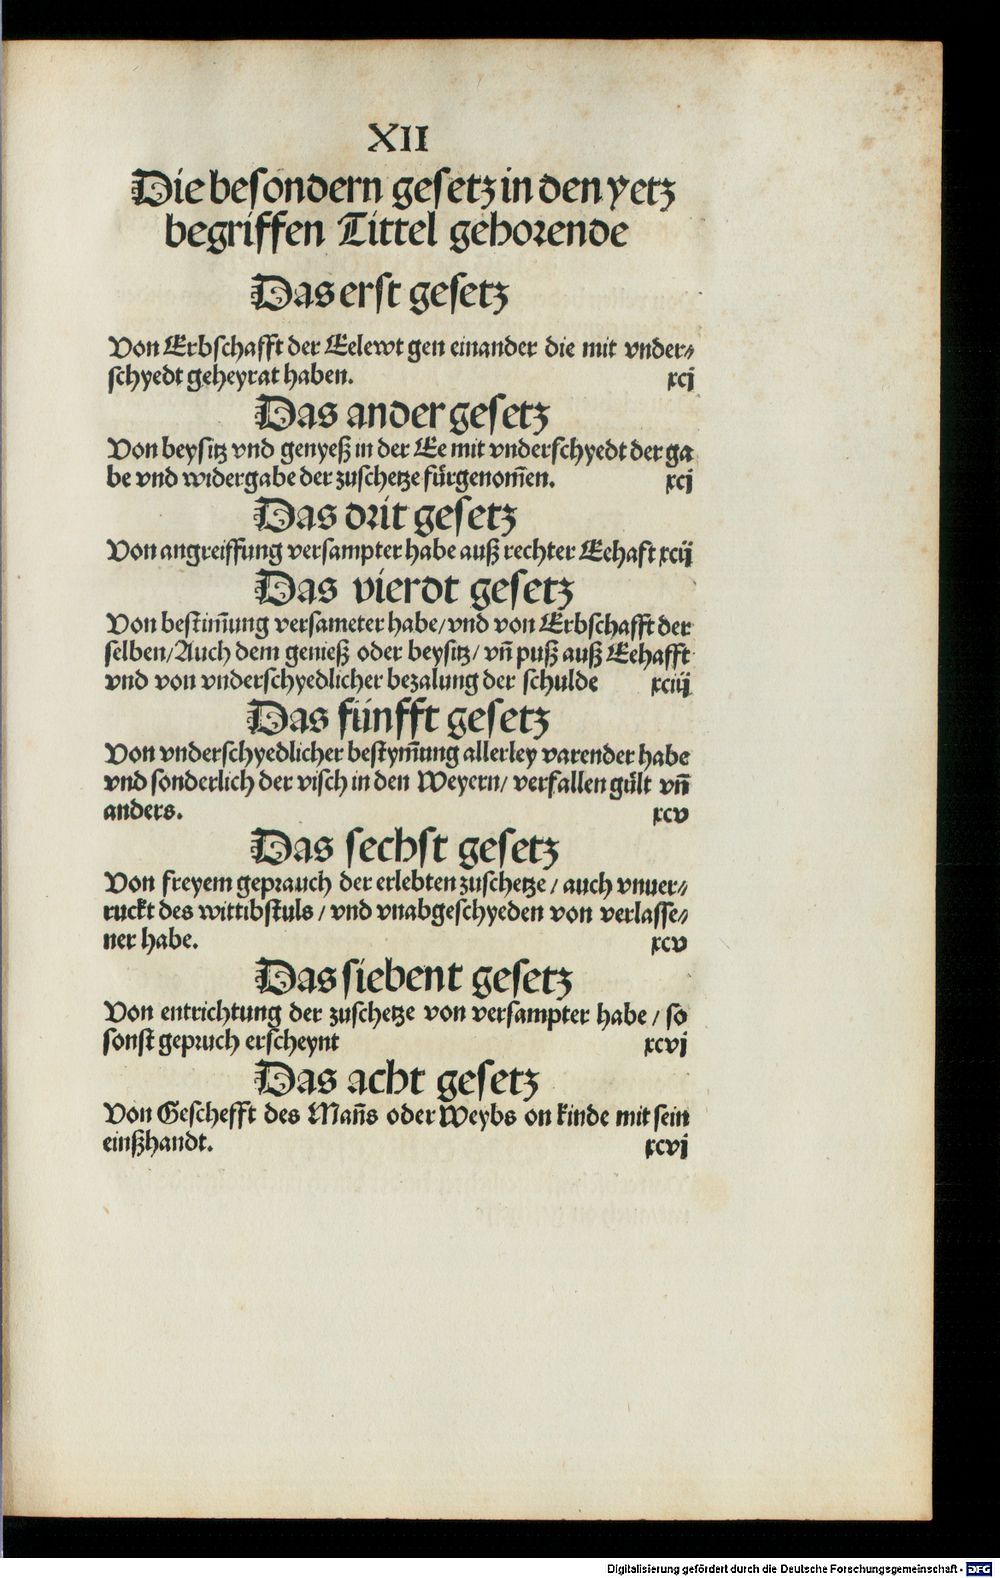 XII
Die besondern gesetz in den yetz
begriffen Tittel gehorende
Das erst gesetz
Von Erbschafft der Eelewt gen einander die mit vnder⸗
schyedt geheyrat haben. xcj
Das ander gesetz
Von beysitz vnd genyeß in der Ee mit vnderschyedt der ga
be vnd widergabe der zuschetze fürgenom̄en. xcj
Das drit gesetz
Von angreiffung versampter habe auß rechter Eehaft xcij
Das vierdt gesetz
Von bestim̄ung versameter habe/vnd von Erbschafft der
selben/Auch dem genieß oder beysitz/ vn̄ puß auß Eehafft
vnd von vnderschyedlicher bezalung der schulde xciij
Das fünfft gesetz
Von vnderschyedlicher bestym̄ung allerley varender habe
vnd sonderlich der visch in den Weyern/ verfallen gült vn̄
anders. xcv
Das sechst gesetz
Von freyem geprauch der erlebten zuschetze / auch vnuer⸗
ruckt des wittibstuls / vnd vnabgeschyeden von verlasse⸗
ner habe. xcv
Das siebent gesetz
Von entrichtung der zuschetze von versampter habe / so
sonst gepruch erscheynt xcvj
Das acht gesetz
Von Geschefft des Man̄s oder Weybs on kinde mit sein
einßhandt. xcvj
Digitalisierung gefördert durch die Deutsche Forschungsgemeinschaft - DFG